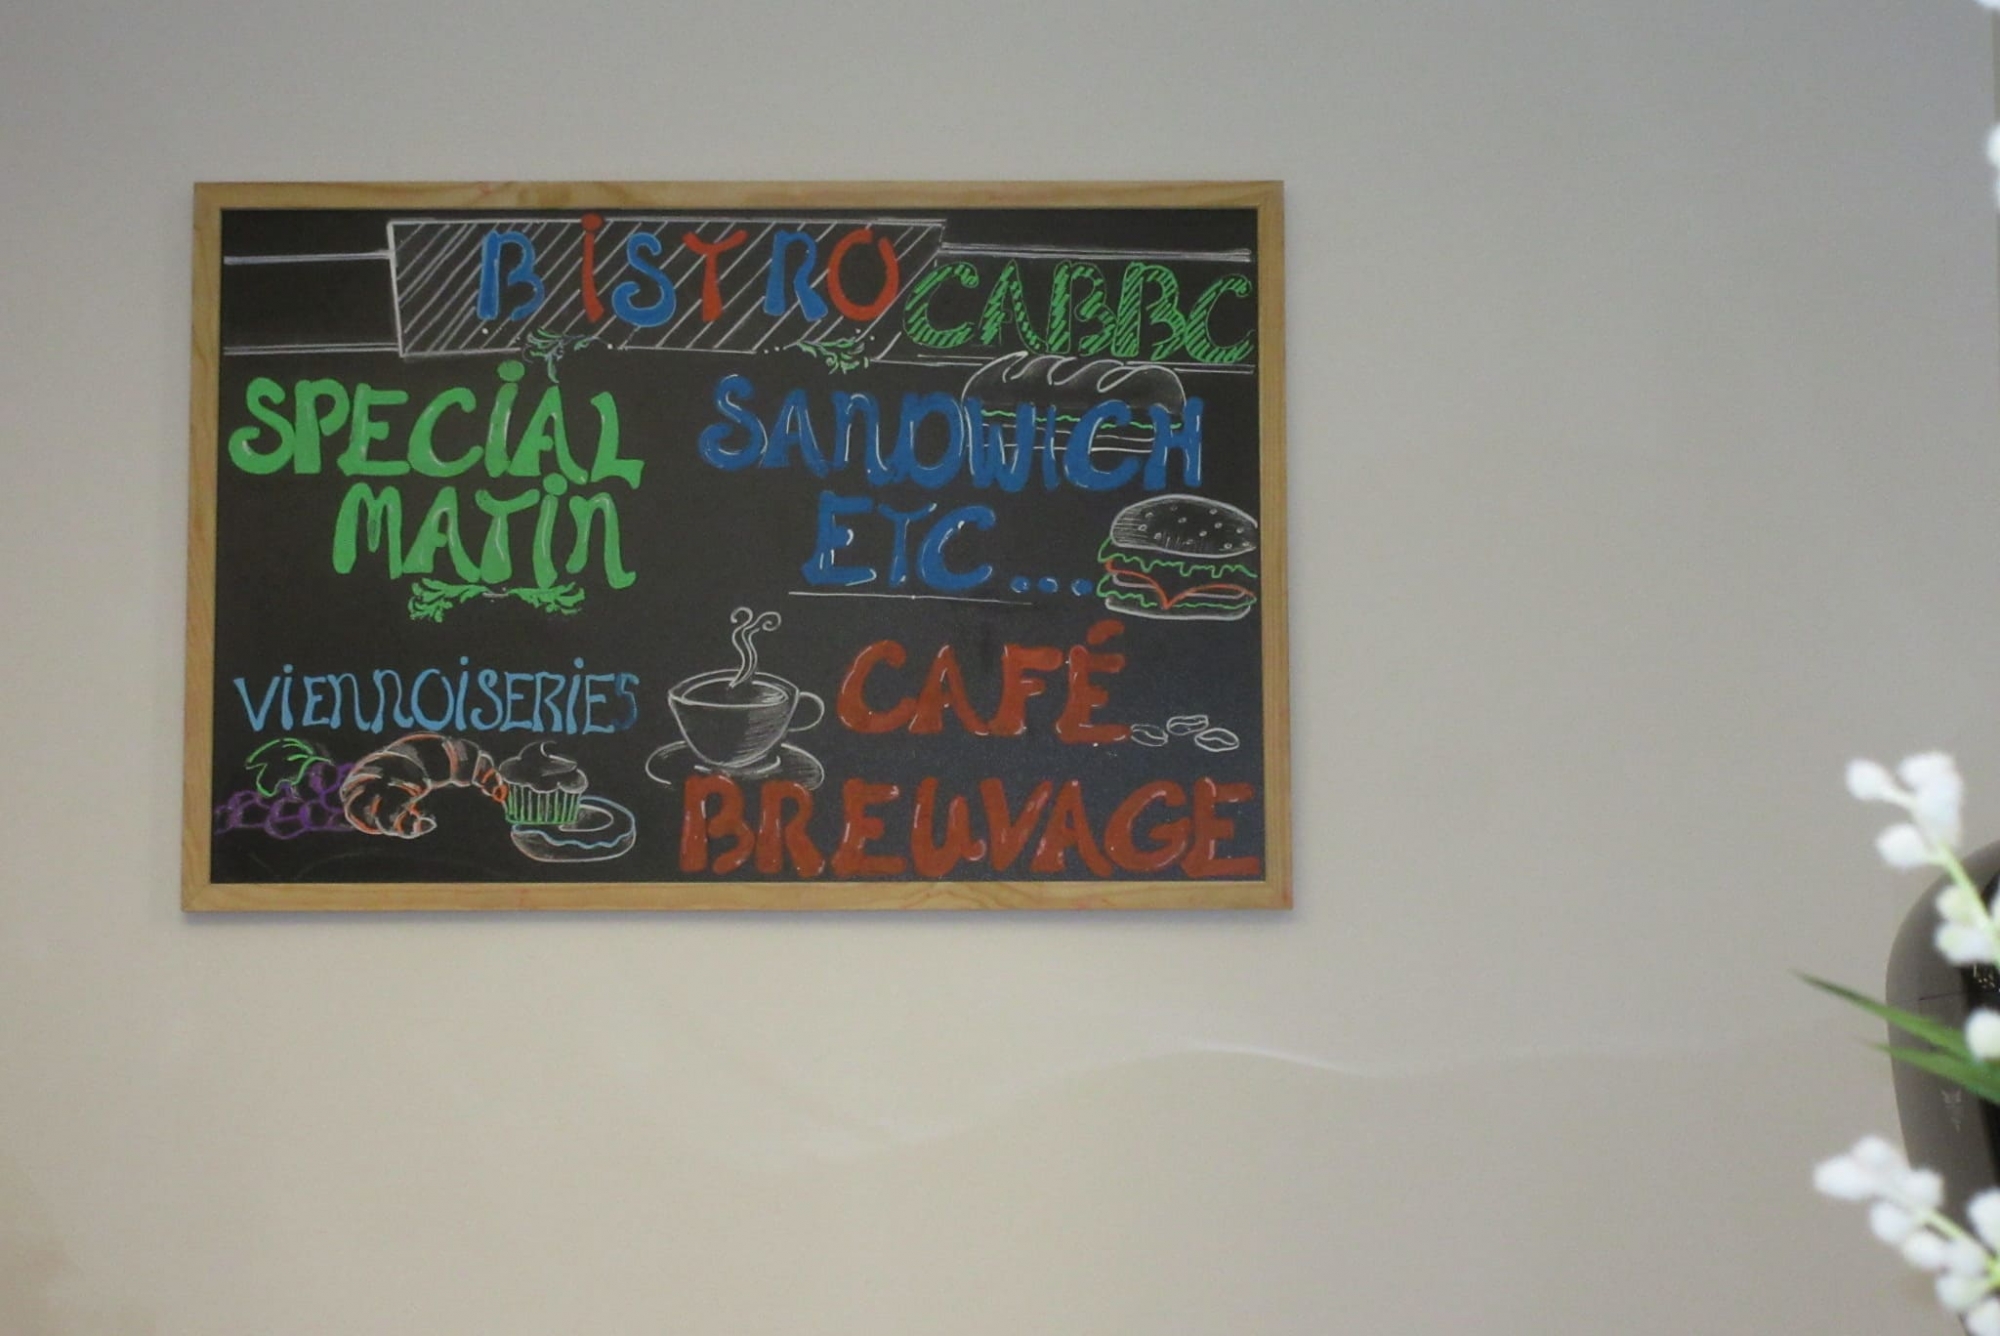 BiSTRO CABBC
SPECiAL
MATiN
SANDWICH
ETC...
ViENNOiSERiES
CAFÉ
BREUVAGE